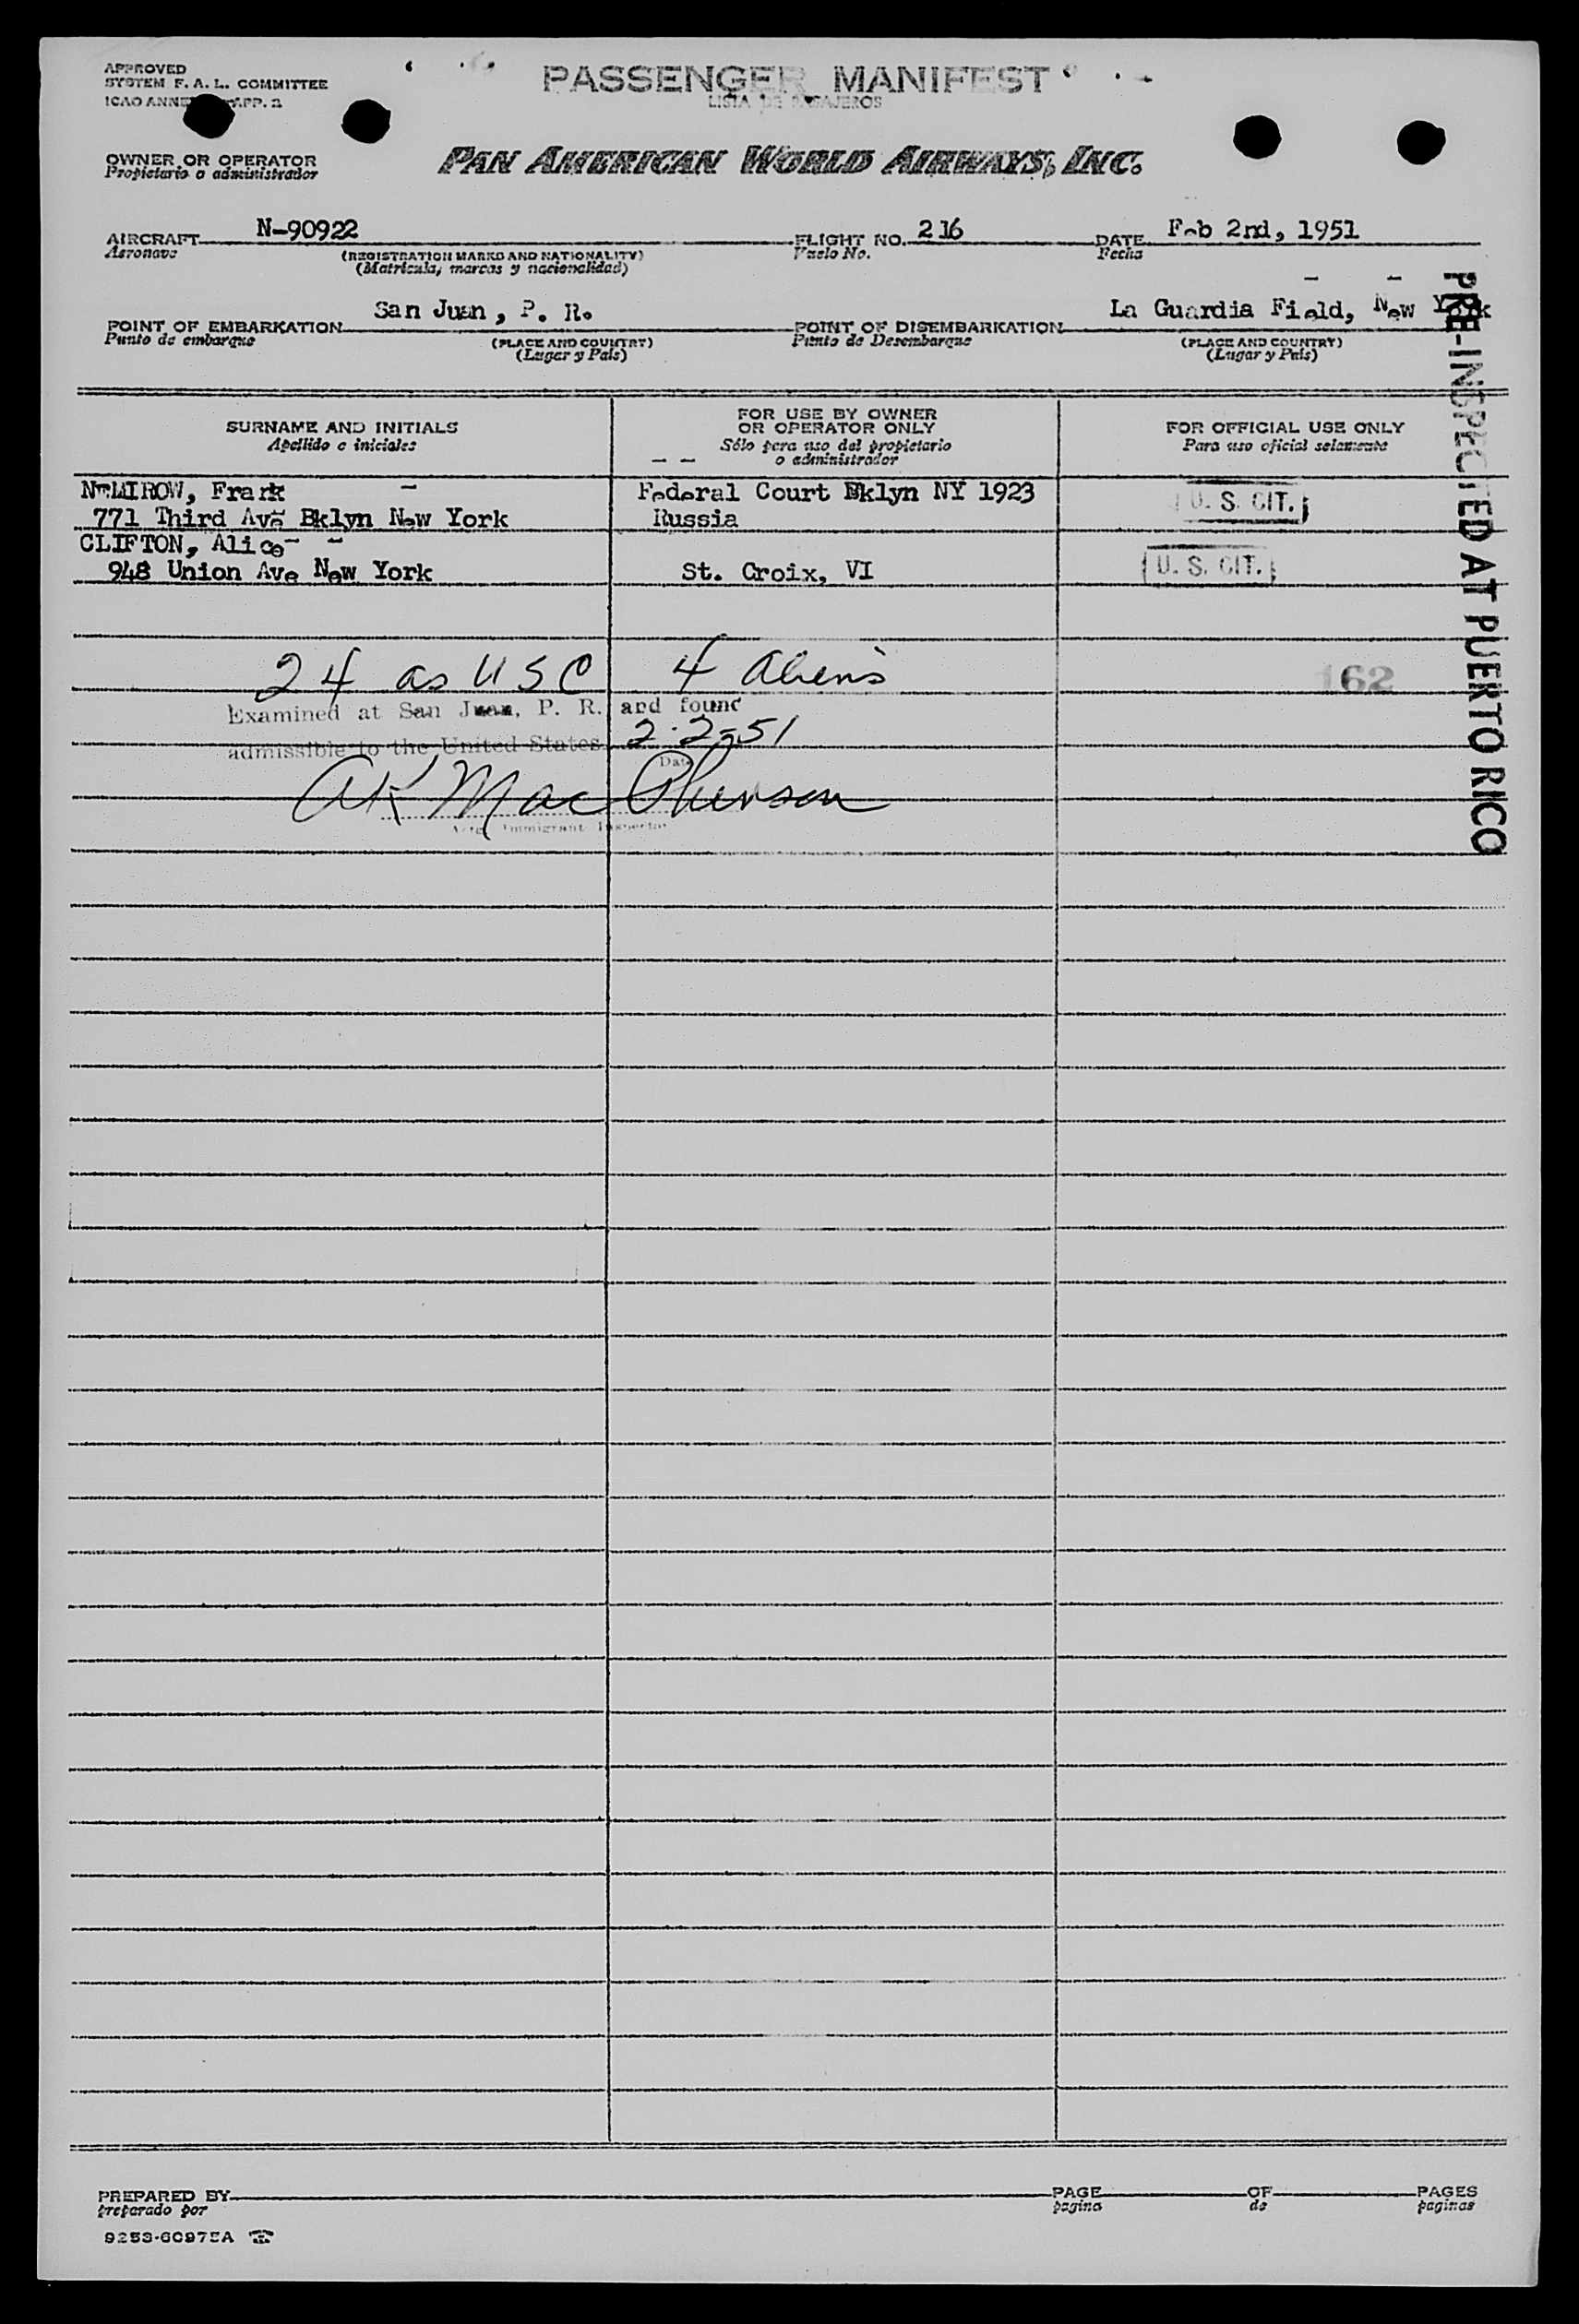 APPROVED
SYSTEM F. A. L. COMMITTEE
ICAO ANNE APP. 2
PASSENGER MANIFEST
LISTA DE PASAJEROS
OWNER OR OPERATOR
Propietario o administrador
PAN AMERICAN WORLD AIRWAYS, INC.
AIRCRAFT N-90922 FLIGHT NO. 216 DATE Feb 2nd, 1951
Aeronave (REGISTRATION MARKS AND NATIONALITY) Vuelo No. Fecha
(Matricula, marcas y nacionalidad)
POINT OF EMBARKATION San Juan, P. R. POINT OF DISEMBARKATION La Guardia Field, New York
Punto de embarque (PLACE AND COUNTRY) Punto de Desembarque (PLACE AND COUNTRY)
(Lugar y País) (Lugar y País)
PRE-INSPECTED AT PUERTO RICO
SURNAME AND INITIALS FOR USE BY OWNER OR OPERATOR ONLY FOR OFFICIAL USE ONLY
Apellido e iniciales Sólo para uso del propietario o administrador Para uso oficial solamente
NEMIROW, Frank Federal Court Bklyn NY 1923 U. S. CIT.
771 Third Ave Bklyn New York Russia
CLIFTON, Alice
948 Union Ave New York St. Croix, VI U. S. CIT.
24 as USC 4 Aliens 162
Examined at San Juan, P. R. and found
admissible to the United States 2-2-51
Date
AK MacPherson
Actg. Immigrant Inspector
PREPARED BY PAGE OF PAGES
preparado por pagina de paginas
9253-60975A